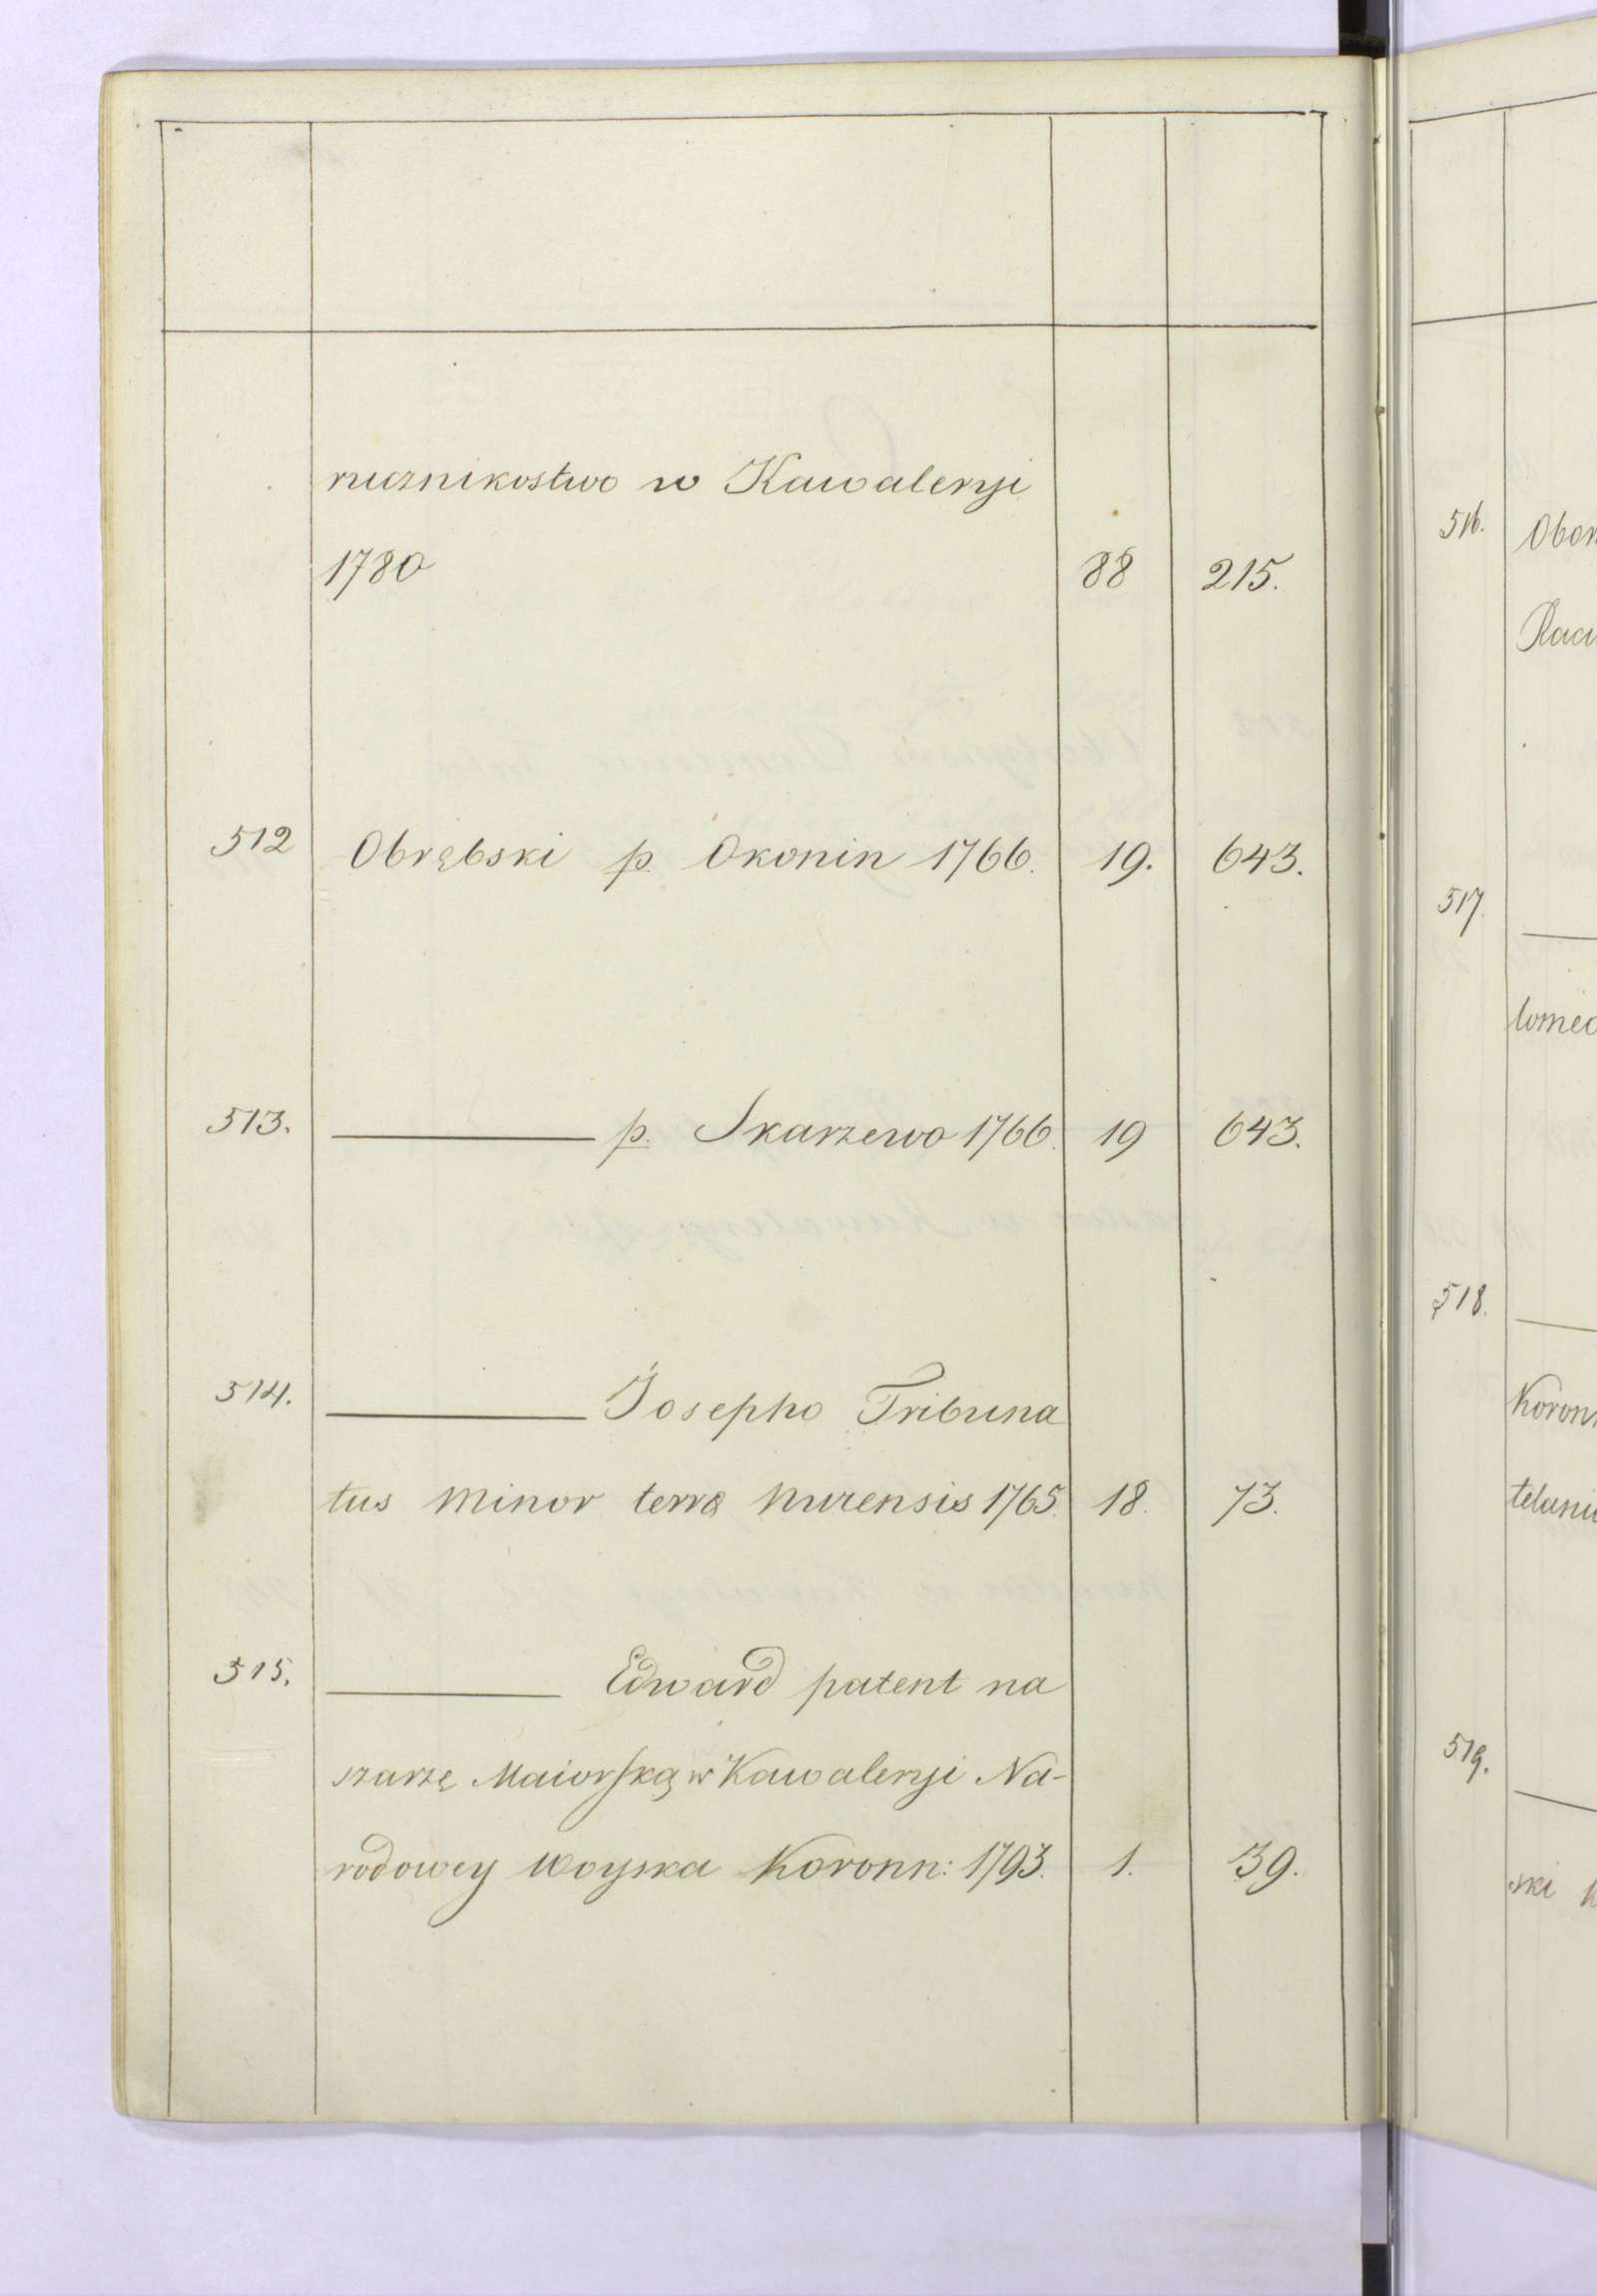 rucznikostwo w Kawaleryi
1780 88 215.
512 Obrębski p. Okonin 1766. 19. 643.
513. ——— p. Skarzewo 1766. 19 643.
514. ——— Josepho Tribuna
tus Minor terrę Nurensis 1765. 18. 73.
515. ——— Edward patent na
szarzę Maiorską w Kawaleryi Na-
rodowey Woyska Koronn: 1793. 1. 39.
516. Obor
Raci
517.
tomeo
518.
Koron
telani
519.
ski